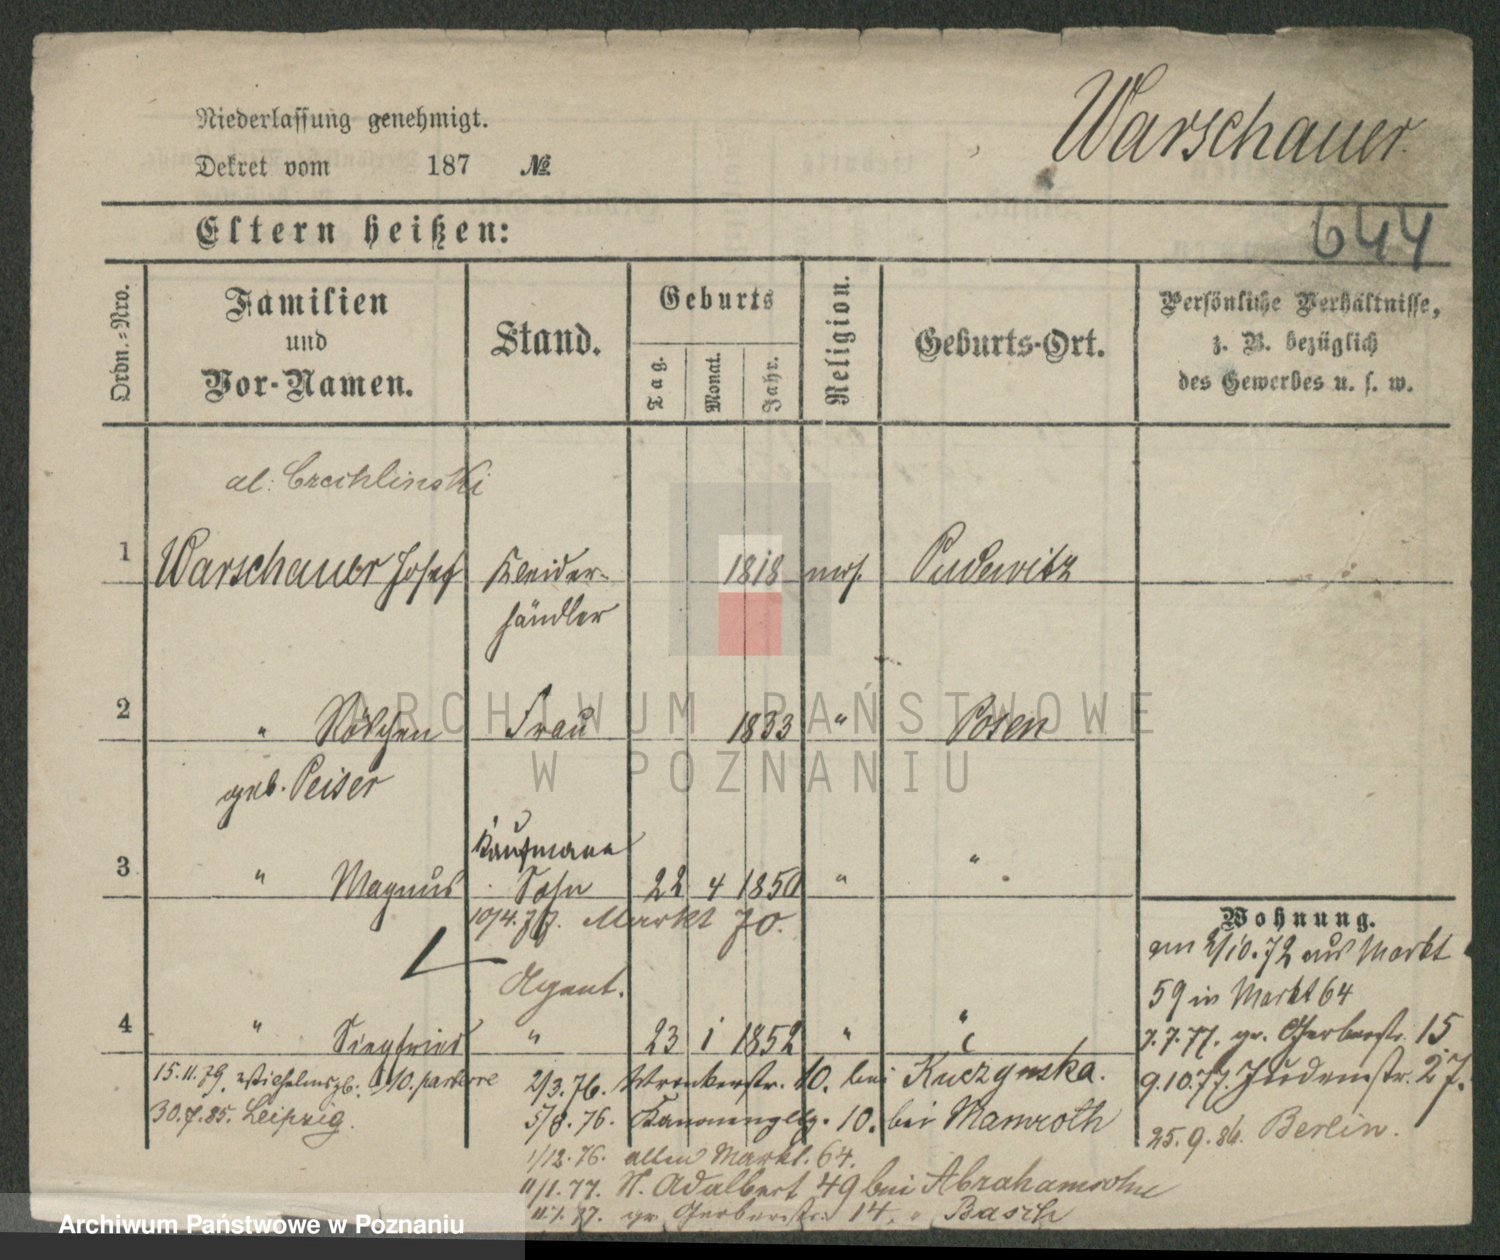 Warschauer.
Niederlassung genehmigt.
Dekret vom 187 №
644
Eltern heißen:
Ordn.-Nro.
Familien
und
Vor-Namen.
Stand.
Geburts
Tag.
Monat.
Jahr.
Religion.
Geburts-Ort.
Persönliche Verhältnisse,
z. B. bezüglich
des Gewerbes u. s. w.
al: Czechlinski
1 Warschauer Josef Kleider- 1818 mos. Pudewitz
händler
2 " Röschen Frau 1833 " Posen
geb. Peiser
Kaufmann
3 " Magnus Sohn 22 4 1850 " "
10/4. 77. Markt 70.
Agent.
4 " Siegfried " 23 1 1852 " "
Wohnung.
am 2/10.72 aus Markt
59 in Markt 64
7.7.77. gr. Gerberstr. 15
9.10.77. Judenstr. 27.
25.9.86. Berlin.
15.11.79. Wilhelmspl. 10. parterre
30.7.85. Leipzig.
2/3.76. Wronkerstr. 10. bei Kuczynska.
5/8.76. Kanonenplz. 10. bei Mamroth
1/12.76. alten Markt. 64.
11/1.77. St. Adalbert 49 bei Abrahamsohn
11.7.77. gr. Gerberstr. 14, " Basch
Archiwum Państwowe w Poznaniu
ARCHIWUM PAŃSTWOWE
W POZNANIU